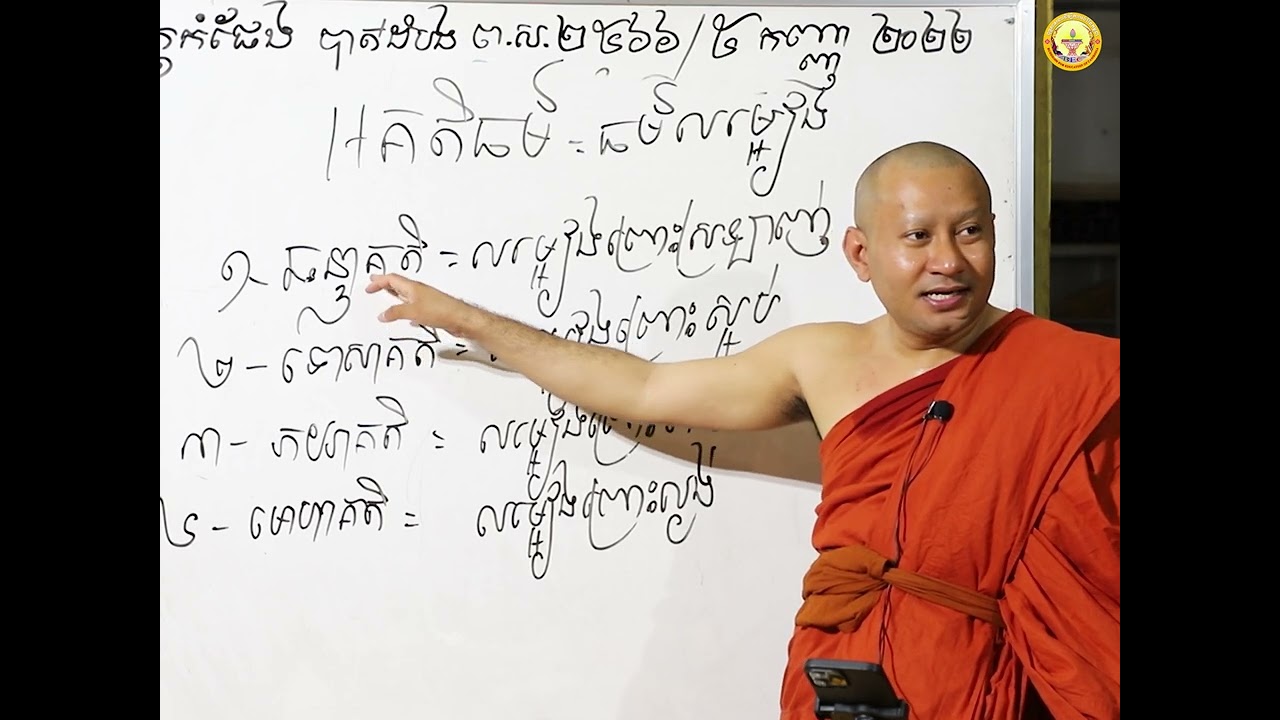 កំផែង បាត់ដំបង ព.ស.២៥៦៦/៥ កញ្ញា ២០២២
អគតិធម៌ = ធម៌លម្អៀង
១- ឆន្ទាគតិ = លម្អៀងព្រោះស្រឡាញ់
២- ទោសាគតិ = ព្រោះស្អប់
៣- ភយាគតិ = លម្អៀងព្រោះ
៤- មោហាគតិ = លម្អៀងព្រោះល្ងង់